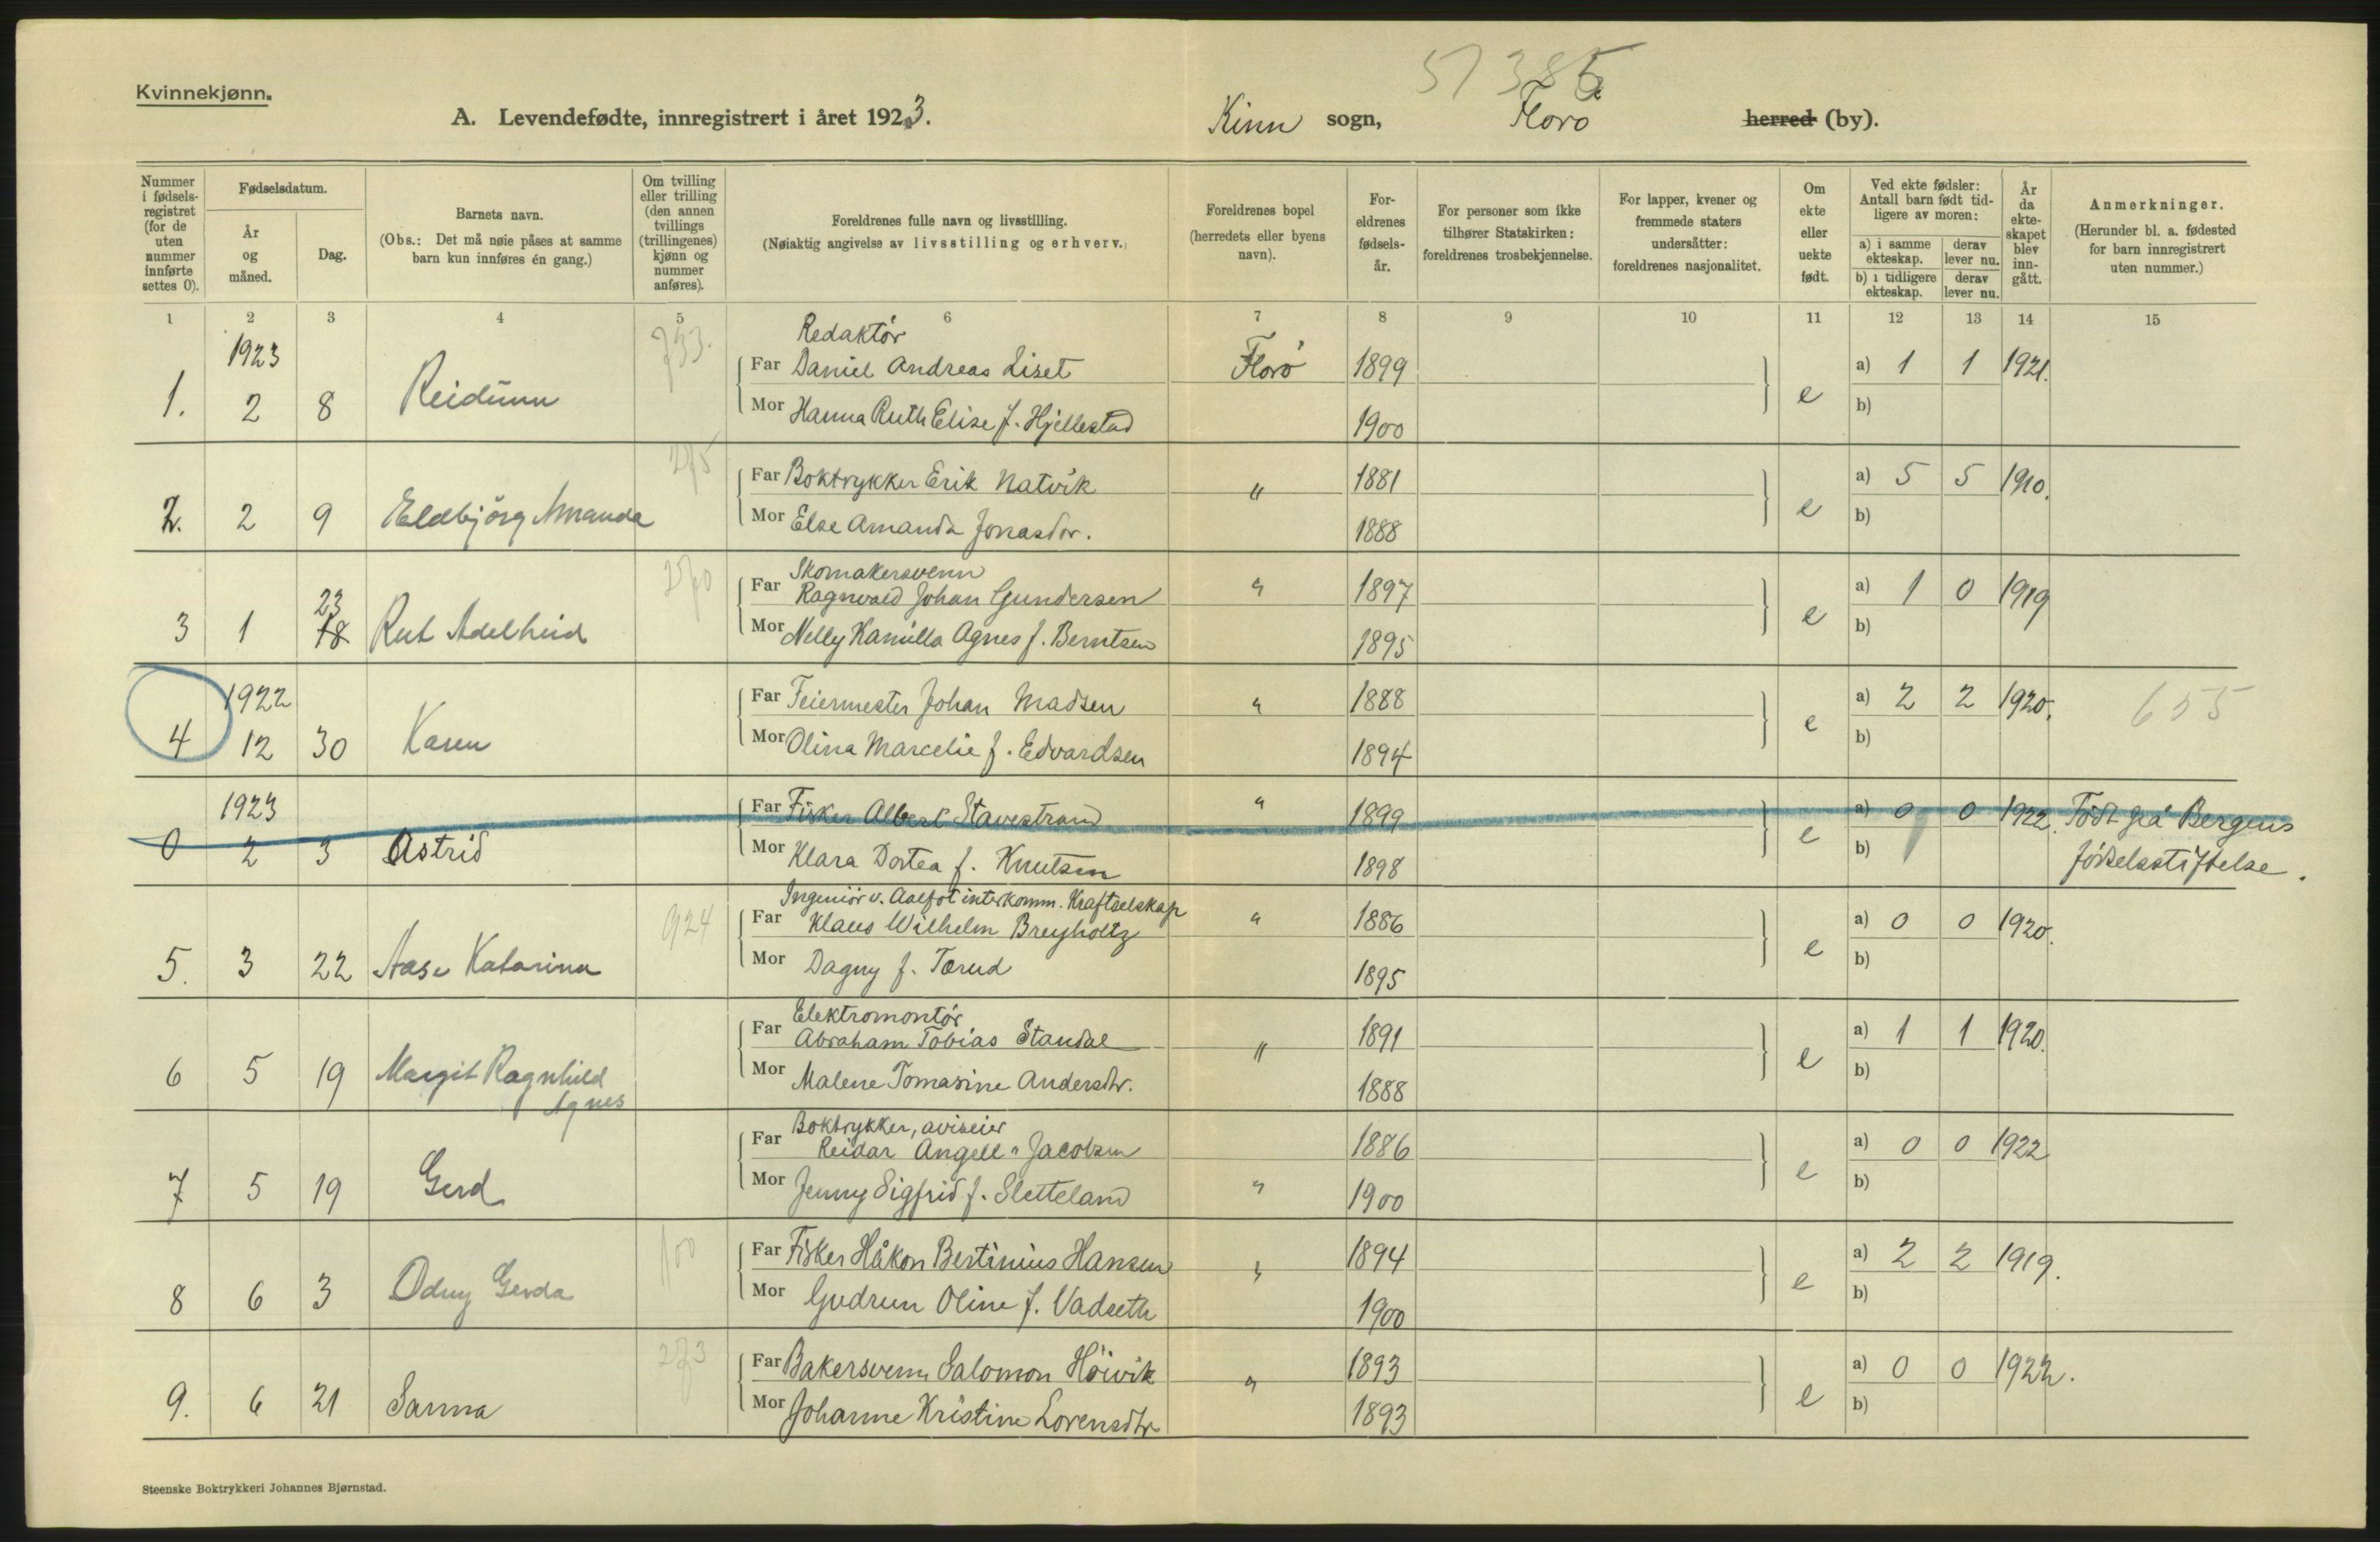 Kvinnekjønn.
51385
A. Levendefødte, innregistrert i året 1923.
Kinn sogn, Florø herred (by).
Nummer i fødselsregistret (for de uten nummer innførte settes 0).
Fødselsdatum.
År og måned.
Dag.
Barnets navn.
(Obs.: Det må nøie påses at samme barn kun innføres én gang.)
Om tvilling eller trilling (den annen tvillings (trillingenes) kjønn og nummer anføres).
Foreldrenes fulle navn og livsstilling.
(Nøiaktig angivelse av livsstilling og erhverv.)
Foreldrenes bopel (herredets eller byens navn).
Foreldrenes fødselsår.
For personer som ikke tilhører Statskirken: foreldrenes trosbekjennelse.
For lapper, kvener og fremmede staters undersåtter: foreldrenes nasjonalitet.
Om ekte eller uekte født.
Ved ekte fødsler: Antall barn født tidligere av moren:
a) i samme ekteskap. derav lever nu.
b) i tidligere ekteskap. derav lever nu.
År da ekteskapet blev inngått.
Anmerkninger.
(Herunder bl. a. fødested for barn innregistrert uten nummer.)
1 2 3 4 5 6 7 8 9 10 11 12 13 14 15
1923 733. Redaktör
Far Daniel Andreas Liset Florö 1899 a) 1 1 1921.
1. 2 8 Reidunn e
Mor Hanna Ruth Elise f. Hjellestad 1900 b)
275
Far Boktrykker Erik Natvik " 1881 a) 5 5 1910.
2. 2 9 Eldbjörg Amanda e
Mor Else Amanda Jonasdtr. 1888 b)
270 Skomakersvenn
Far Ragnvald Johan Gundersen " 1897 a) 1 0 1919
23
3 1 18 Rut Adelheid e
Mor Nelly Kamilla Agnes f. Berntsen 1895 b)
1922
Far Feiermester Johan Madsen " 1888 a) 2 2 1920. 655
4 12 30 Karen e
Mor Olina Marcelie f. Edvardsen 1894 b)
1923
Far Fisker Albert Stavestrand " 1899 a) 0 0 1922. Födt på Bergens
0 2 3 Astrid e
Mor Klara Dortea f. Knutsen 1898 b) födselsstiftelse.
924 Ingeniör v. Aalfot interkomm. Kraftselskap
Far Klaus Wilhelm Breyholtz " 1886 a) 0 0 1920.
5. 3 22 Aase Katarina e
Mor Dagny f. Torud 1895 b)
Elektromontör
Far Abraham Tobias Standal " 1891 a) 1 1 1920.
6 5 19 Margit Ragnhild e
Agnes
Mor Malene Tomasine Andersdtr. 1888 b)
Boktrykker, aviseier
Far Reidar Angell-Jacobsen 1886 a) 0 0 1922
7 5 19 Gerd e
Mor Jenny Sigfrid f. Sletteland " 1900 b)
100
Far Fisker Håkon Bertinius Hansen " 1894 a) 2 2 1919.
8 6 3 Odny Gerda e
Mor Gudrun Oline f. Vadseth 1900 b)
273
Far Bakersvenn Salomon Höivik " 1893 a) 0 0 1922.
9. 6 21 Sanna e
Mor Johanne Kristine Lorensdtr 1893 b)
Steenske Boktrykkeri Johannes Bjørnstad.